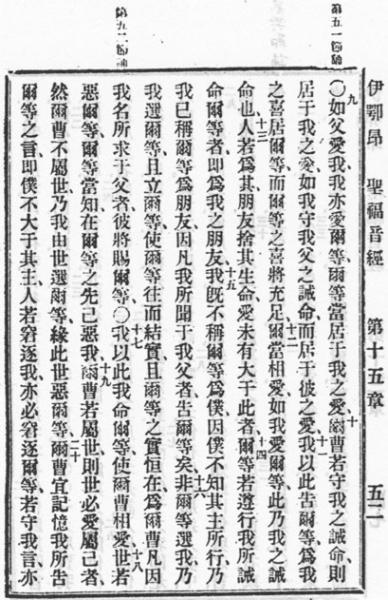 伊鄂昂 聖福音經 第十五章 五二
第五一
九〇如父愛我、我亦愛爾等、爾等當居于我之愛、十爾曹若守我之誡命、則
居于我之愛、如我守我父之誡命、而居于彼之愛、十一我以此告爾等、爲我
之喜居爾等、而爾等之喜將充足、十二爾當相愛、如我愛爾等、此乃我之誡
命也、十三人若爲其朋友捨其生命、愛未有大于此者、十四爾等若遵行我所誡
命爾等者、即爲我之朋友、十五我旣不稱爾等爲僕、因僕不知其主所行、乃
我已稱爾等爲朋友、因凡我所聞于我父者、吿爾等矣、十六非爾等選我、乃
我選爾等、且立爾等、使爾等往而結實、且爾等之實恒在、爲爾曹凡因
第五二
我名所求于父者、彼將賜爾等、十七〇我以此我命爾等、使爾曹相愛、十八世若
惡爾等、爾等當知在爾等之先已惡我、十九爾曹若屬世、則世必愛屬己者、
然爾曹不屬世、乃我由世選爾等、緣此世惡爾等、二十爾曹宜記憶我所告
爾等之言、即僕不大于其主、人若窘逐我、亦必窘逐爾等、若守我言、亦